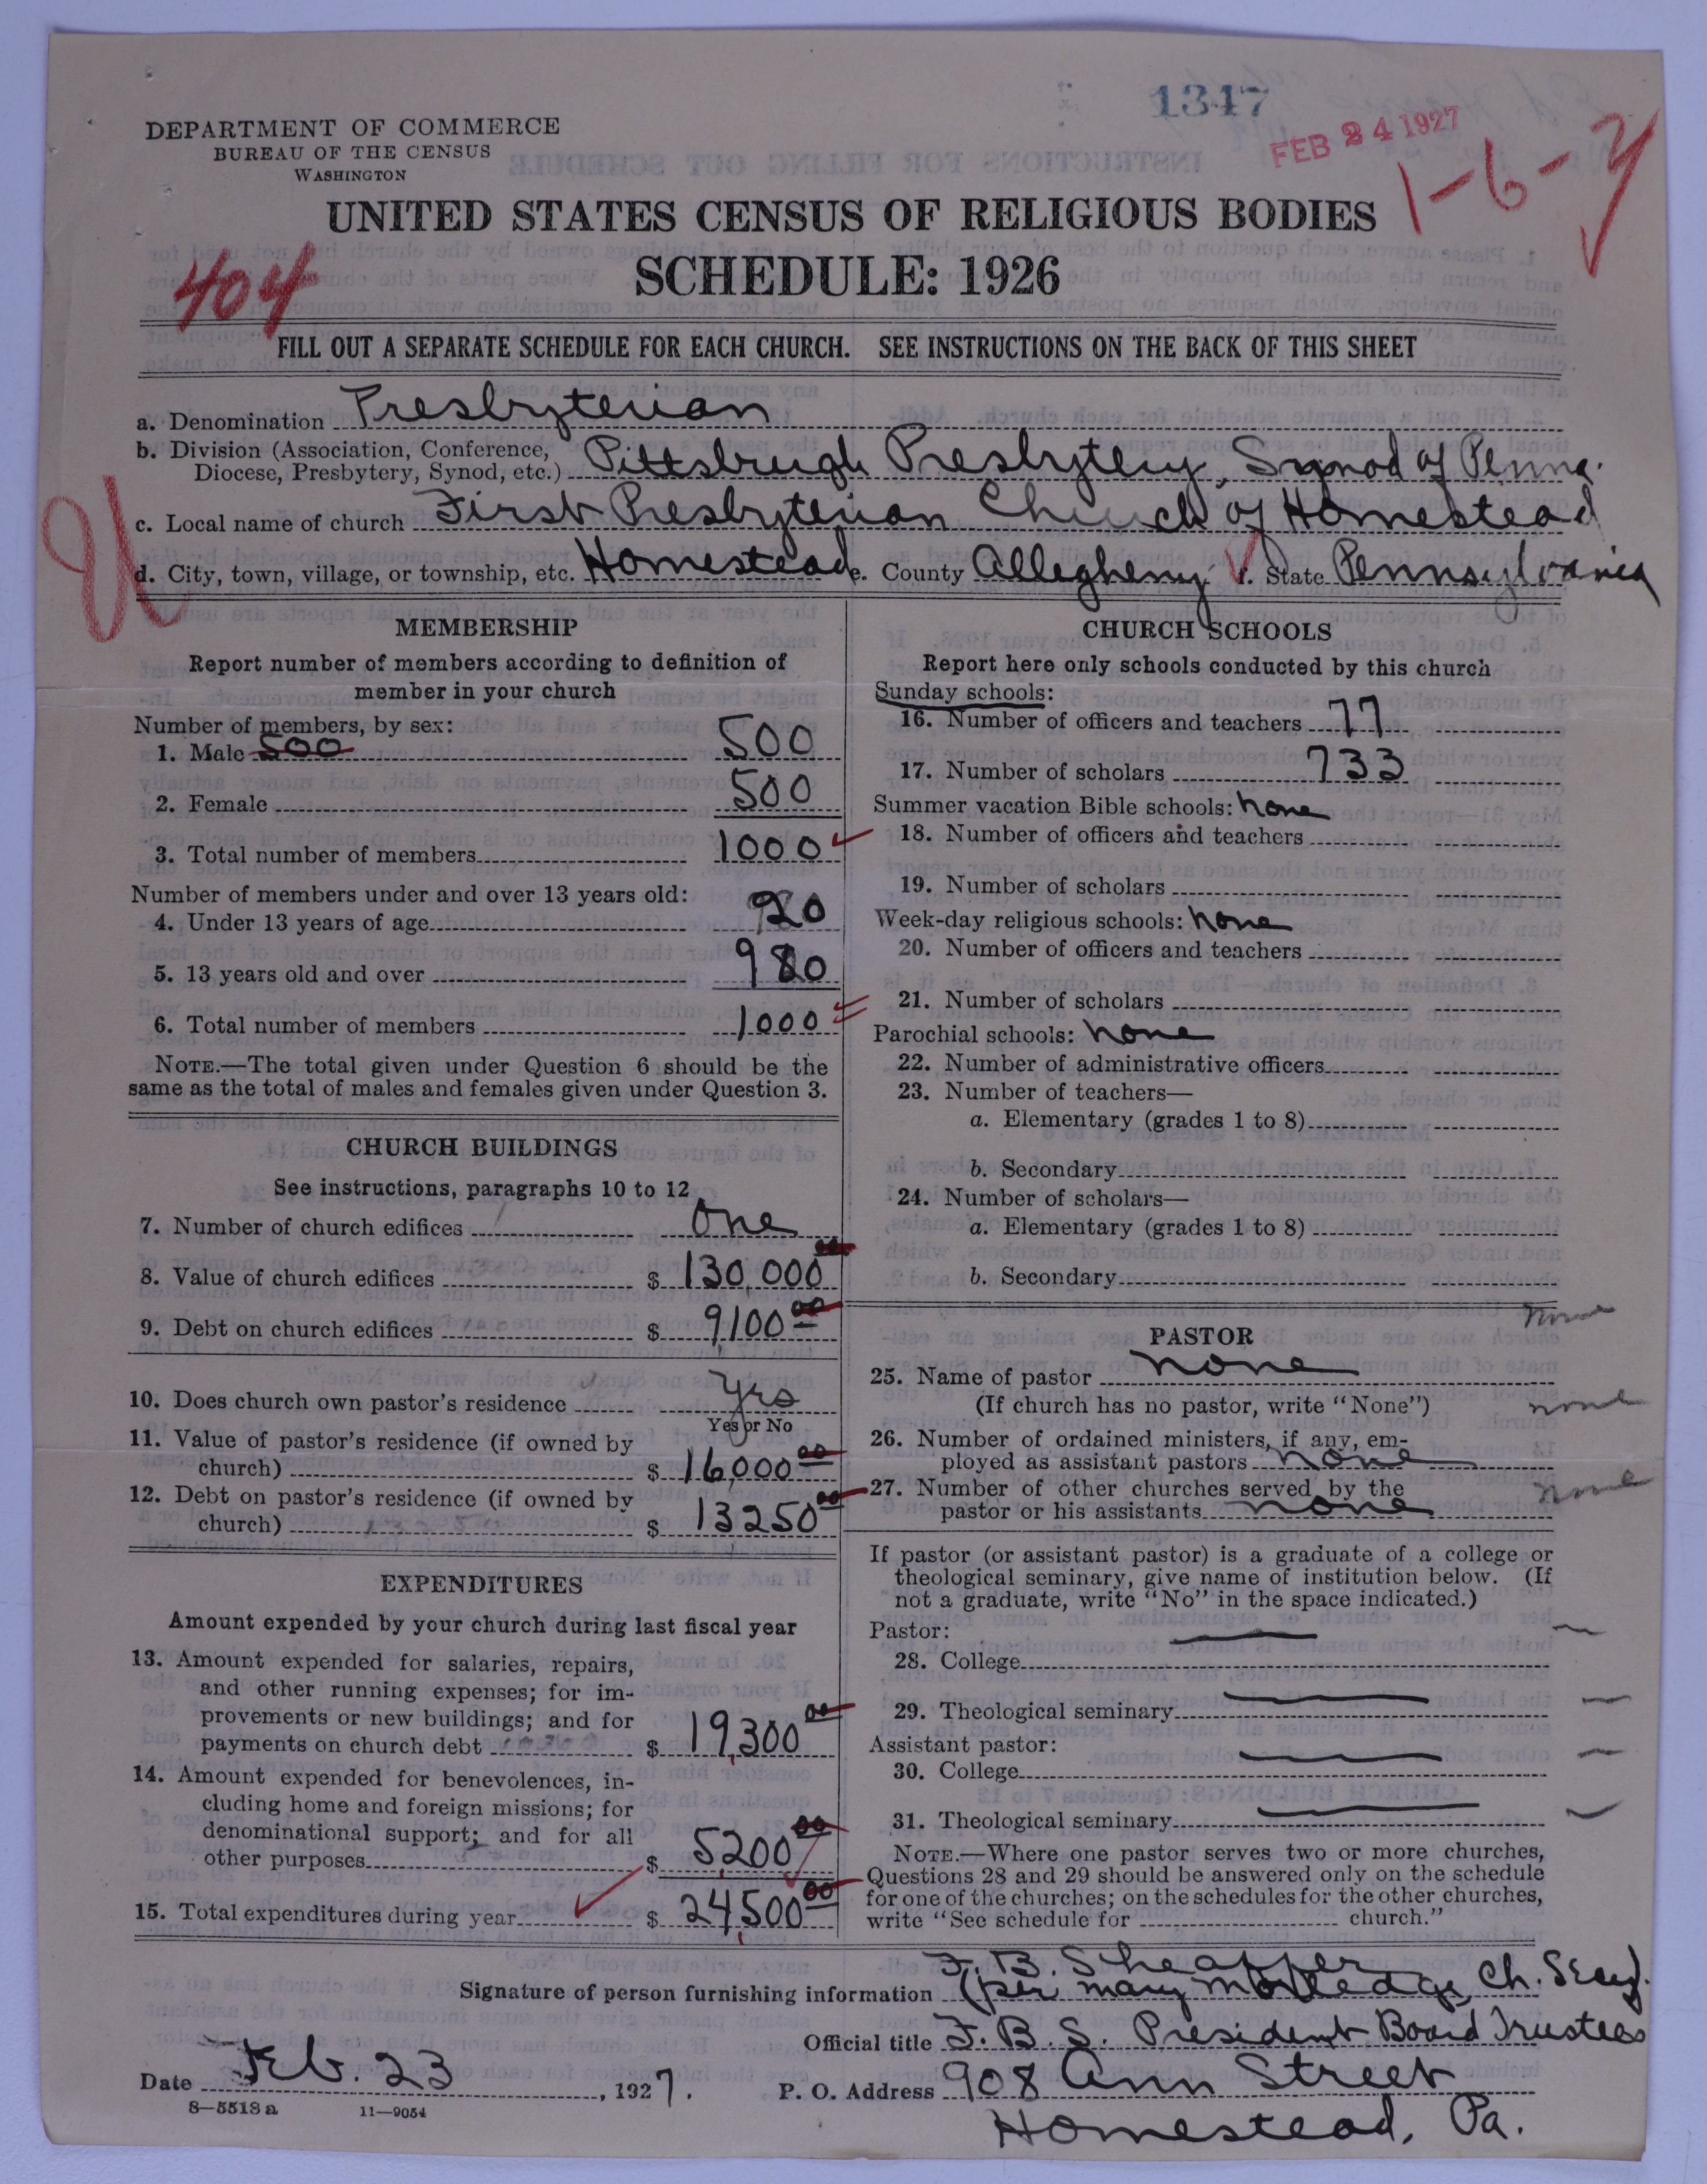 1347
FEB 24 1927
DEPARTMENT OF COMMERCE
BUREAU OF THE CENSUS
WASHINGTON
1-6-
UNITED STATES CENSUS OF RELIGIOUS BODIES
404
SCHEDULE: 1926
FILL OUT A SEPARATE SCHEDULE FOR EACH CHURCH. SEE INSTRUCTIONS ON THE BACK OF THIS SHEET
a. Denomination Presbyterian
b. Division (Association, Conference, Diocese, Presbytery, Synod, etc.) Pittsbrugh Presbytery, Synod of Penna.
c. Local name of church First Presbyterian Church of Homestead
d. City, town, village, or township, etc. Homestead e. County Allegheny f. State Pennsylvania
MEMBERSHIP
Report number of members according to definition of
member in your church
Number of members, by sex:
1. Male 500 500
2. Female 500
3. Total number of members 1000
Number of members under and over 13 years old:
4. Under 13 years of age 20
5. 13 years old and over 980
6. Total number of members 1000
NOTE.—The total given under Question 6 should be the
same as the total of males and females given under Question 3.
CHURCH BUILDINGS
See instructions, paragraphs 10 to 12
7. Number of church edifices One
8. Value of church edifices $ 130,000 00
9. Debt on church edifices $ 9,100 00
10. Does church own pastor's residence Yes
Yes or No
11. Value of pastor's residence (if owned by
church) $ 16,000 00
12. Debt on pastor's residence (if owned by
church) $ 13250 00
EXPENDITURES
Amount expended by your church during last fiscal year
13. Amount expended for salaries, repairs,
and other running expenses; for im-
provements or new buildings; and for
payments on church debt $ 19,300 00
14. Amount expended for benevolences, in-
cluding home and foreign missions; for
denominational support; and for all
other purposes $ 5,200 00
15. Total expenditures during year $ 24,500 00
CHURCH SCHOOLS
Report here only schools conducted by this church
Sunday schools:
16. Number of officers and teachers 77
17. Number of scholars 733
Summer vacation Bible schools: none
18. Number of officers and teachers
19. Number of scholars
Week-day religious schools: none
20. Number of officers and teachers
21. Number of scholars
Parochial schools: none
22. Number of administrative officers
23. Number of teachers—
a. Elementary (grades 1 to 8)
b. Secondary
24. Number of scholars—
a. Elementary (grades 1 to 8)
b. Secondary
none
PASTOR
25. Name of pastor none
(If church has no pastor, write "None") none
26. Number of ordained ministers, if any, em-
ployed as assistant pastors none
27. Number of other churches served by the none
pastor or his assistants none
If pastor (or assistant pastor) is a graduate of a college or
theological seminary, give name of institution below. (If
not a graduate, write "No" in the space indicated.)
Pastor:
28. College
29. Theological seminary
Assistant pastor:
30. College
31. Theological seminary
NOTE.—Where one pastor serves two or more churches,
Questions 28 and 29 should be answered only on the schedule
for one of the churches; on the schedules for the other churches,
write "See schedule for church."
F. B. Sheaffer
Signature of person furnishing information (per Mary Ch. Secy).
Official title F. B. S. President Board Trustees
Date Feb. 23, 1927. P. O. Address 908 Ann Street
8—5518 a 11—9054
Homestead, Pa.